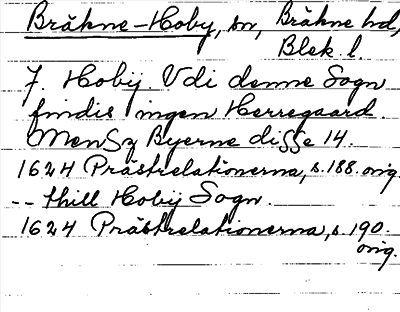 Bräkne-Hoby, sn, Bräkne hd,
Blek. l.
J. Hobij. Vdi denne Sogn
findis ingen Herregaard.
Men Sz Byerne disse 14.
1624 Prästrelationerna, s. 188. orig.
-- thill Hobij Sogn.
1624 Prästrelationerna, s. 190.
orig.